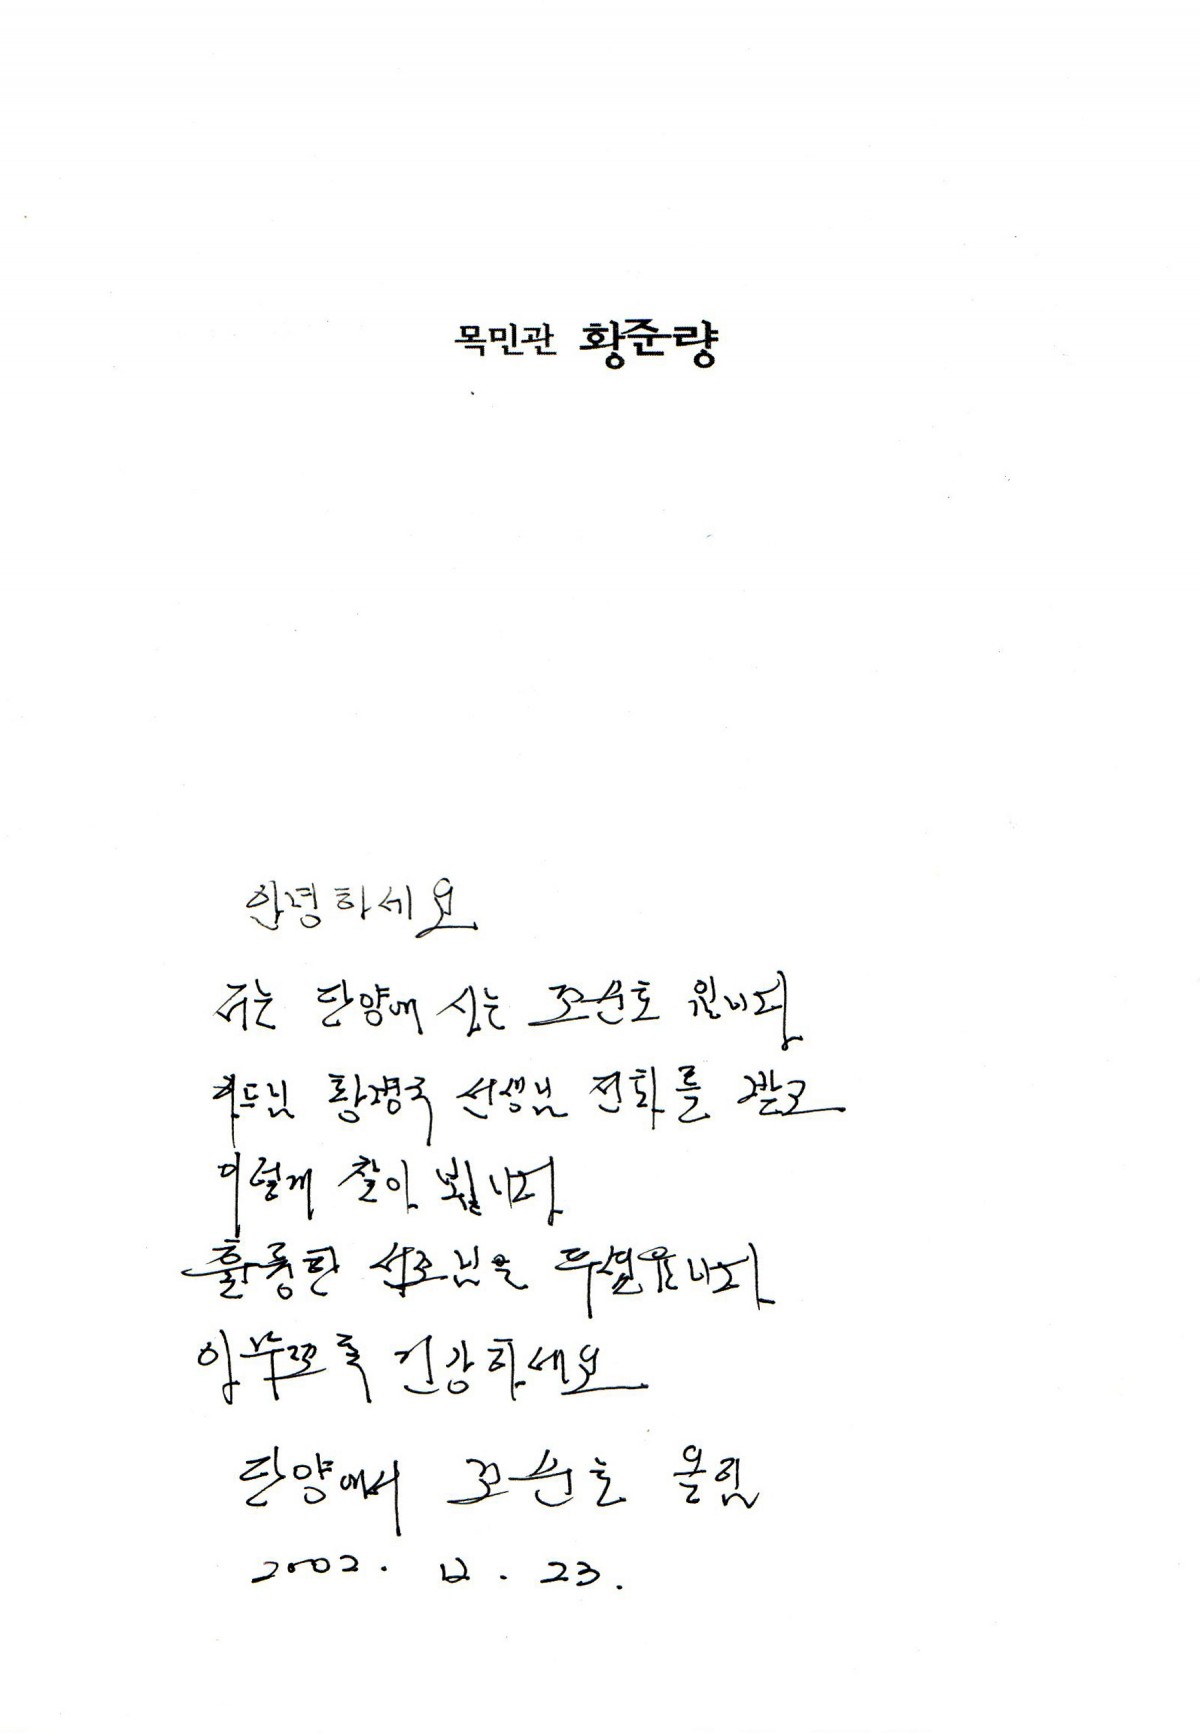 목민관 황준량
안녕하세요
저는 단양에 사는 조순호 입니다
황경국 선생님 전화를 받고
이렇게 찾아 뵙니다
훌륭한 선조님을 두셨읍니다
아무쪼록 건강하세요
단양에서 조순호 올림
2002. 12. 23.